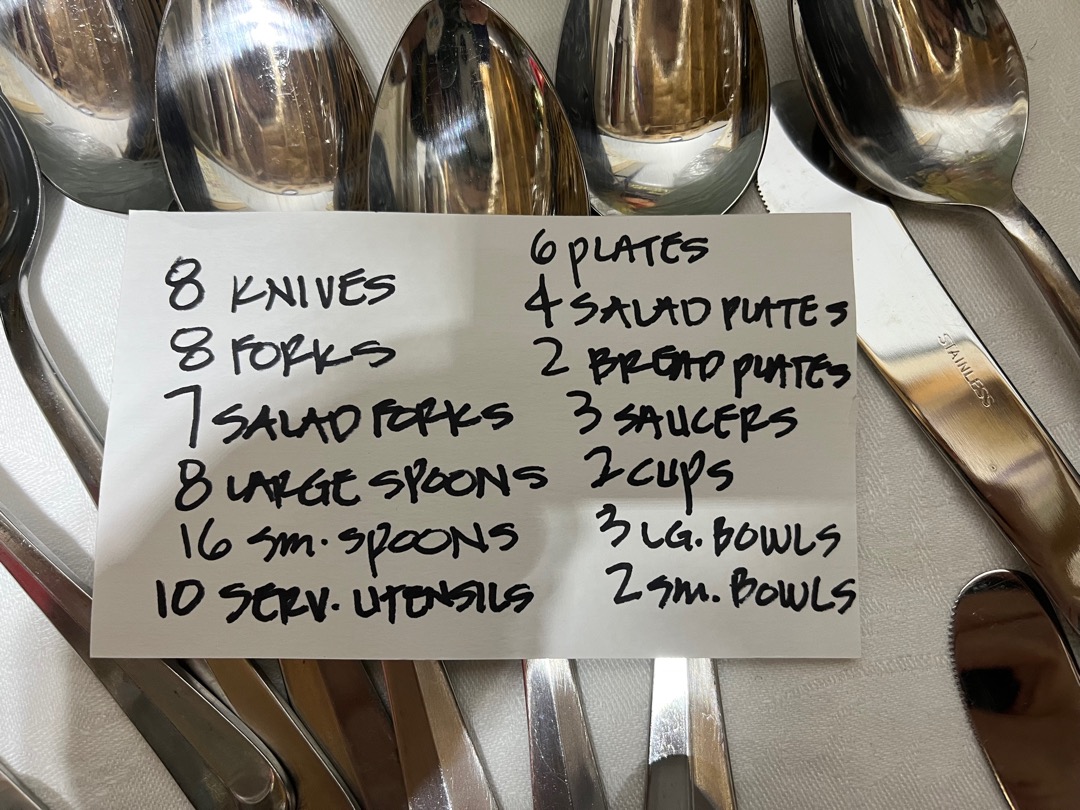 8 KNIVES
8 FORKS
7 SALAD FORKS
8 LARGE SPOONS
16 SM. SPOONS
10 SERV. UTENSILS
6 PLATES
4 SALAD PLATES
2 BREAD PLATES
3 SAUCERS
2 CUPS
3 LG. BOWLS
2 SM. BOWLS
STAINLESS